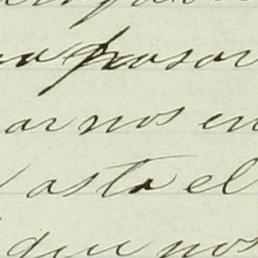 pasar
ar nos en
asta el
que nos